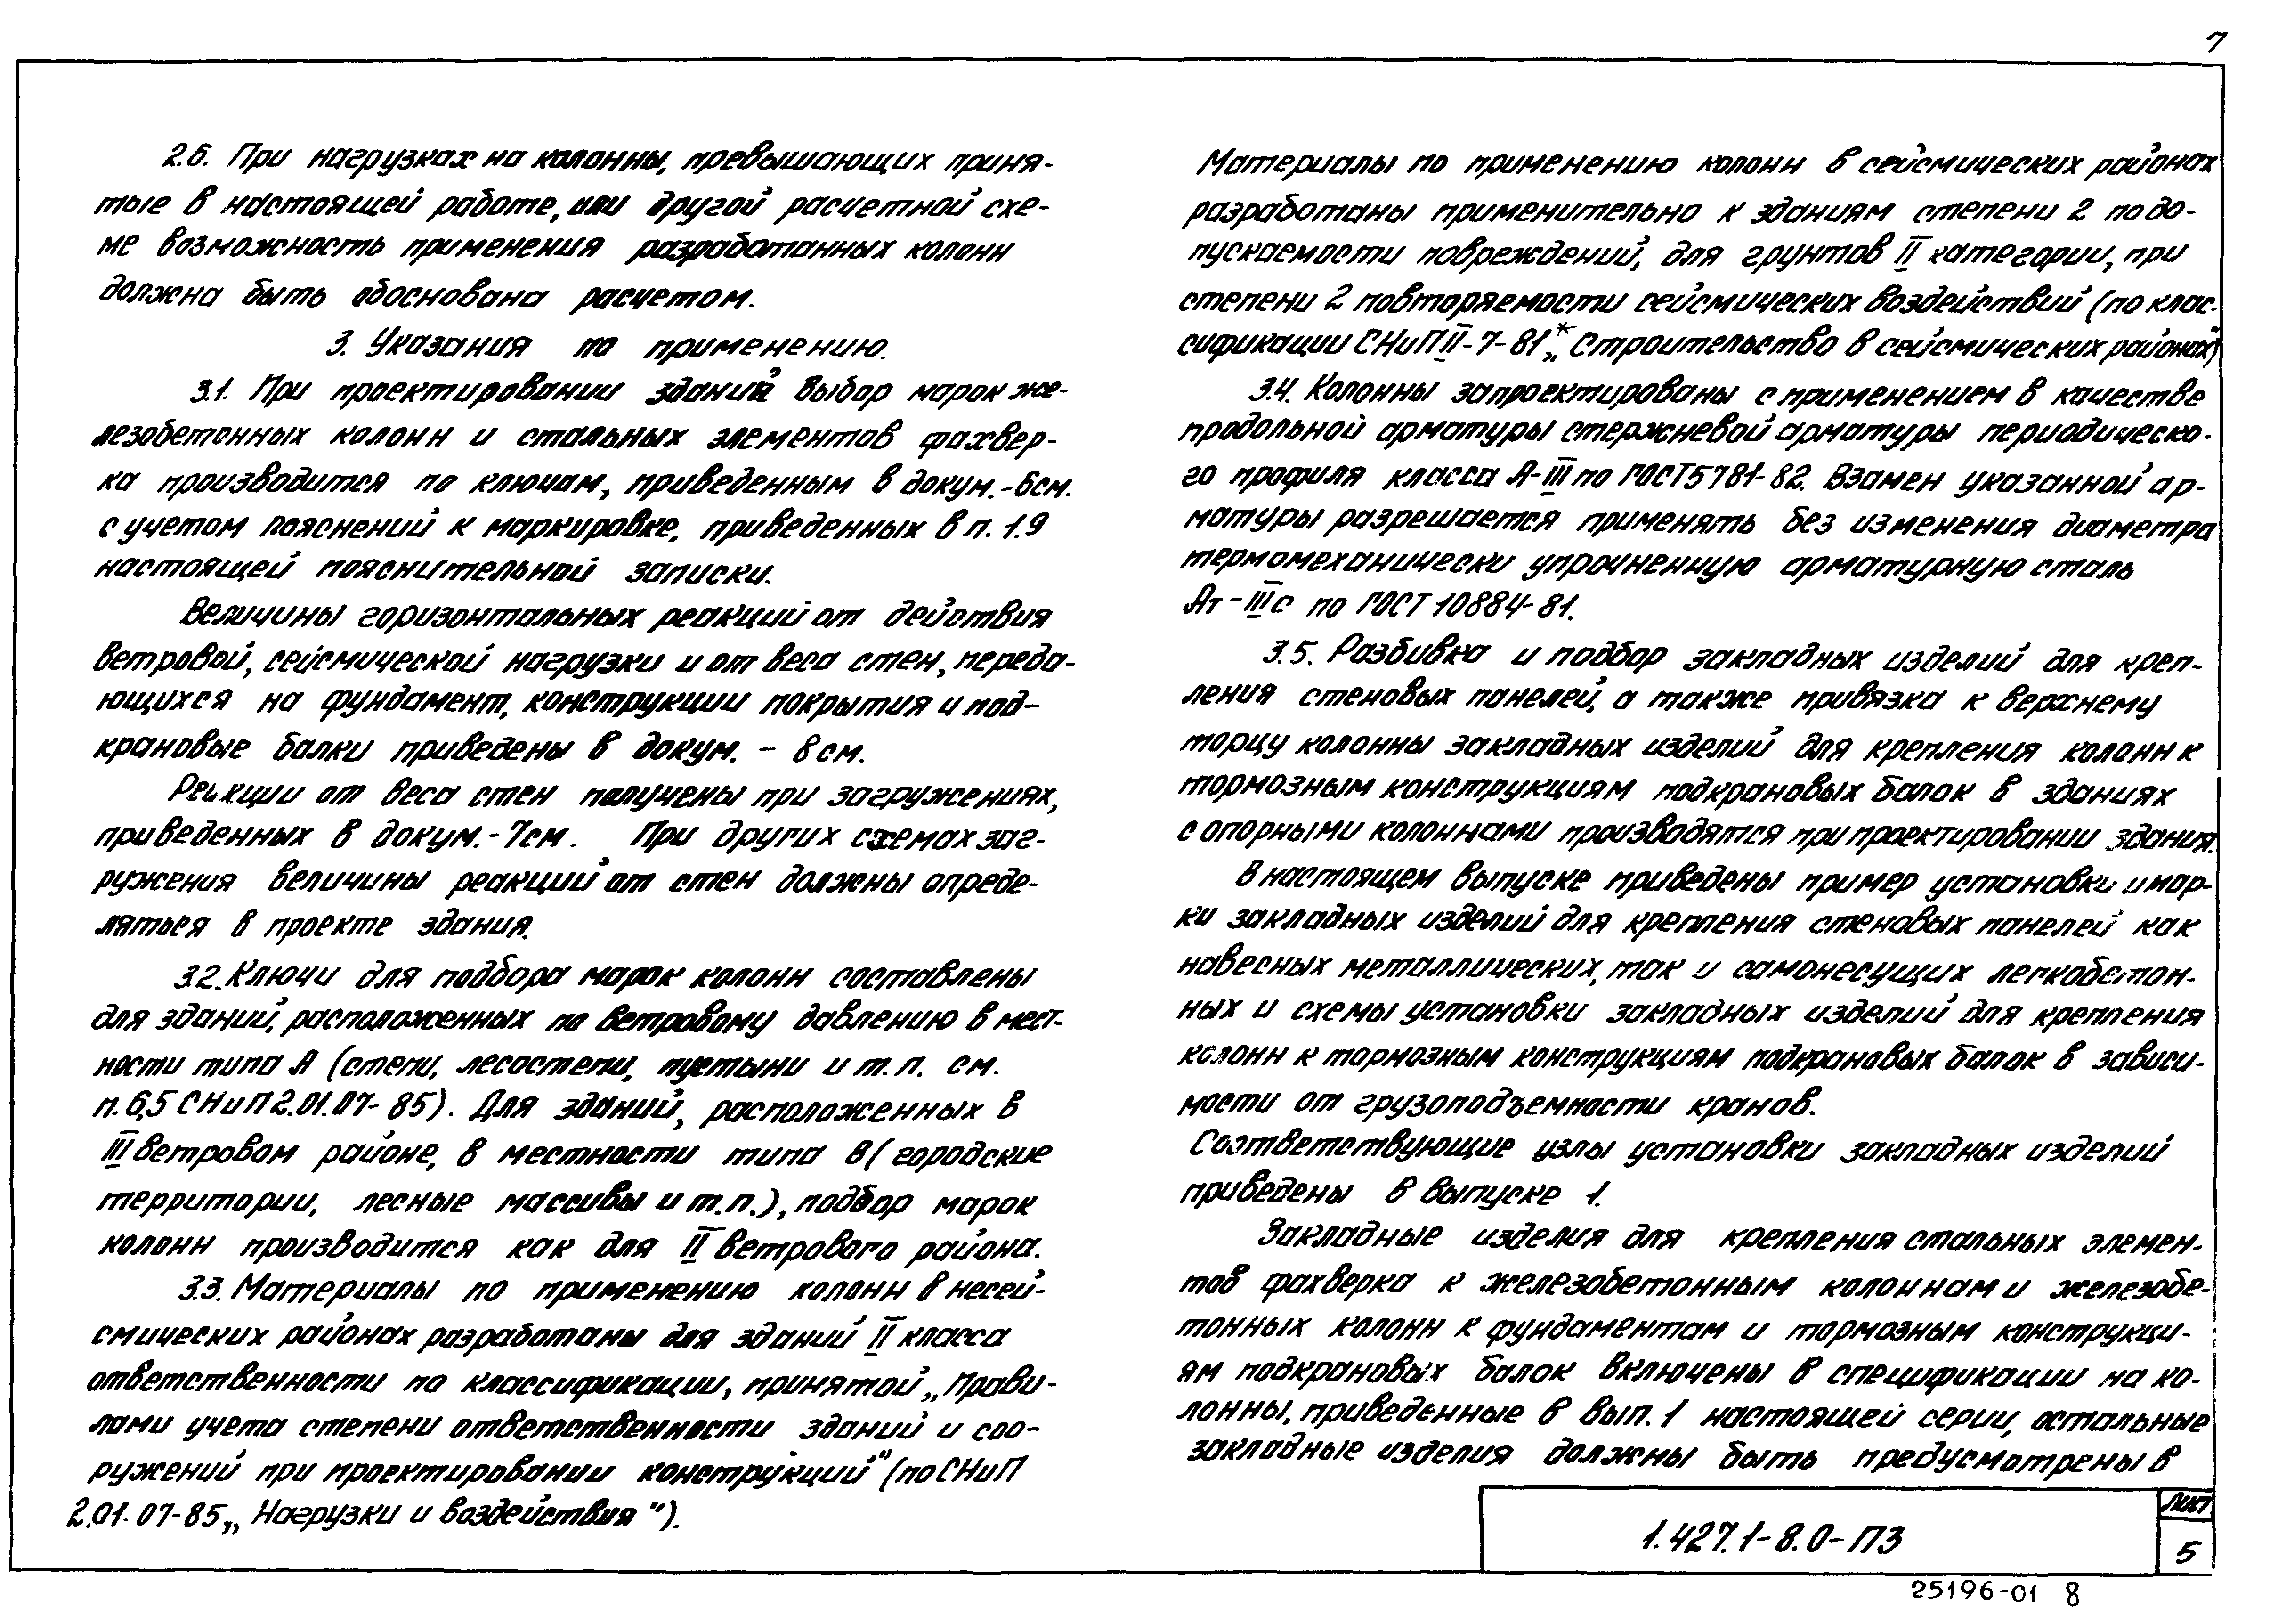 7
2.6. При нагрузках на колонны, превышающих приня-
тые в настоящей работе, или другой расчетной схе-
ме возможность применения разработанных колонн
должна быть обоснована расчетом.
3. Указания по применению.
3.1. При проектировании зданий выбор марок же-
лезобетонных колонн и стальных элементов фахвер-
ка производится по ключам, приведенным в докум.-6см.
с учетом пояснений к маркировке, приведенных в п. 1.9
настоящей пояснительной записки.
Величины горизонтальных реакций от действия
ветровой, сейсмической нагрузки и от веса стен, переда-
ющихся на фундамент, конструкции покрытия и под-
крановые балки приведены в докум. - 8см.
Реакции от веса стен получены при загружениях,
приведенных в докум.-7см. При других схемах заг-
ружения величины реакций от стен должны опреде-
ляться в проекте здания.
3.2. Ключи для подбора марок колонн составлены
для зданий, расположенных по ветровому давлению в мест-
ности типа А (степи, лесостепи, пустыни и т.п. см.
п. 6,5 СНиП 2.01.07-85). Для зданий, расположенных в
III ветровом районе, в местности типа В (городские
территории, лесные массивы и т.п.), подбор марок
колонн производится как для II ветрового района.
3.3. Материалы по применению колонн в несей-
смических районах разработаны для зданий II класса
ответственности по классификации, принятой „Прави-
лами учета степени ответственности зданий и соо-
ружений при проектировании конструкций" (по СНиП
2.01.07-85 „Нагрузки и воздействия").
Материалы по применению колонн в сейсмических районах
разработаны применительно к зданиям степени 2 по до-
пускаемости повреждений, для грунтов II категории, при
степени 2 повторяемости сейсмических воздействий (по клас-
сификации СНиП II-7-81* „Строительство в сейсмических районах")
3.4. Колонны запроектированы с применением в качестве
продольной арматуры стержневой арматуры периодическо-
го профиля класса А-III по ГОСТ 5781-82. Взамен указанной ар-
матуры разрешается применять без изменения диаметра
термомеханически упрочненную арматурную сталь
Ат-IIIс по ГОСТ 10884-81.
3.5. Разбивка и подбор закладных изделий для креп-
ления стеновых панелей, а также привязка к верхнему
торцу колонны закладных изделий для крепления колонн к
тормозным конструкциям подкрановых балок в зданиях
с опорными колоннами производятся при проектировании здания.
В настоящем выпуске приведены пример установки и мар-
ки закладных изделий для крепления стеновых панелей как
навесных металлических, так и самонесущих легкобетон-
ных и схемы установки закладных изделий для крепления
колонн к тормозным конструкциям подкрановых балок в зависи-
мости от грузоподъемности кранов.
Соответствующие узлы установки закладных изделий
приведены в выпуске 1.
Закладные изделия для крепления стальных элемен-
тов фахверка к железобетонным колоннам и железобе-
тонных колонн к фундаментам и тормозным конструкци-
ям подкрановых балок включены в спецификации на ко-
лонны, приведенные в вып. 1 настоящей серии, остальные
закладные изделия должны быть предусмотрены в
1.427.1-8.0-ПЗ
Лист
5
25196-01 8